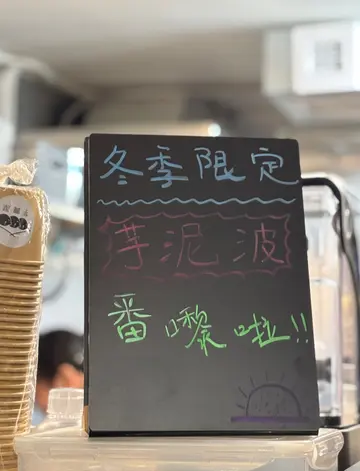 冬季限定
芋泥波
番嚟啦!!